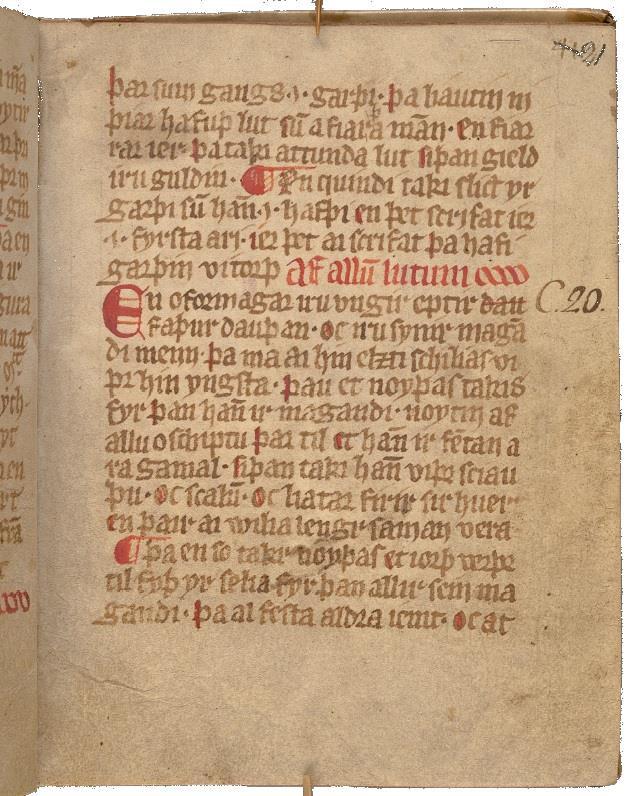 þar sum gangs ·i· garþi· þa hautin in
þiar hafuþ lut sū a fiara mān· en fiar
rar ier· þa taki attunda lut siþan gield
iru guldin· ¶ En quindi taki slict yr
garþi sū hān ·i· hafþi en þet scrifat ier
·i· fyrsta ari· ier þet ai scrifat þa hafi
garþin vitorþ Af allū lutum
En oformagar iru vngir eptir dau C. 20.
faþur dauþan· oc iru synir maga
di menn· þa ma ai hin elzti schilias vi
þr hin yngsta· þau et noyþas takis
fyr þan hān ir magandi· noytin af
allu oschiptu þar til et hān ir fētan a
ra gamal· siþan taki hān viþr sciau
þu· oc scalū· oc liatar firir sir huer·
en þair ai wilia lengr saman vera·
¶ þa en so takr noyþas et iorþ verþr
til fyþ yr selia· fyr þan allir sein ma
gandi· þa al festa aldra iemt· oc at
421